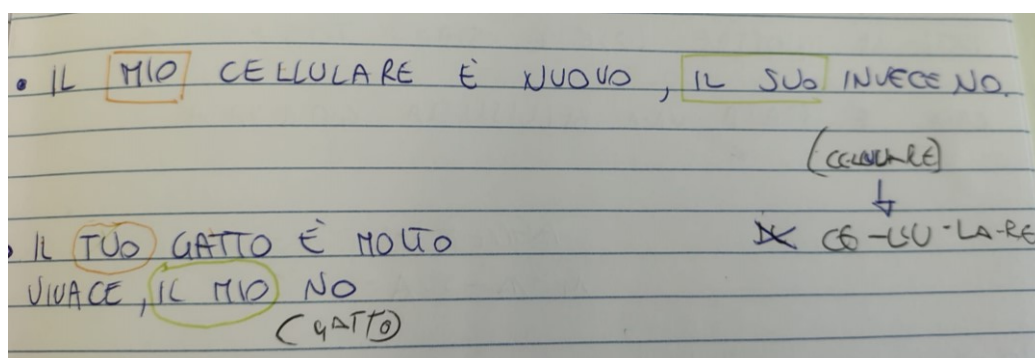 • IL MIO CELLULARE È NUOVO, IL SUO INVECE NO.
(CELLULARE)
↓
CE-LLU-LA-RE
• IL TUO GATTO È MOLTO
VIVACE, IL MIO NO
(GATTO)